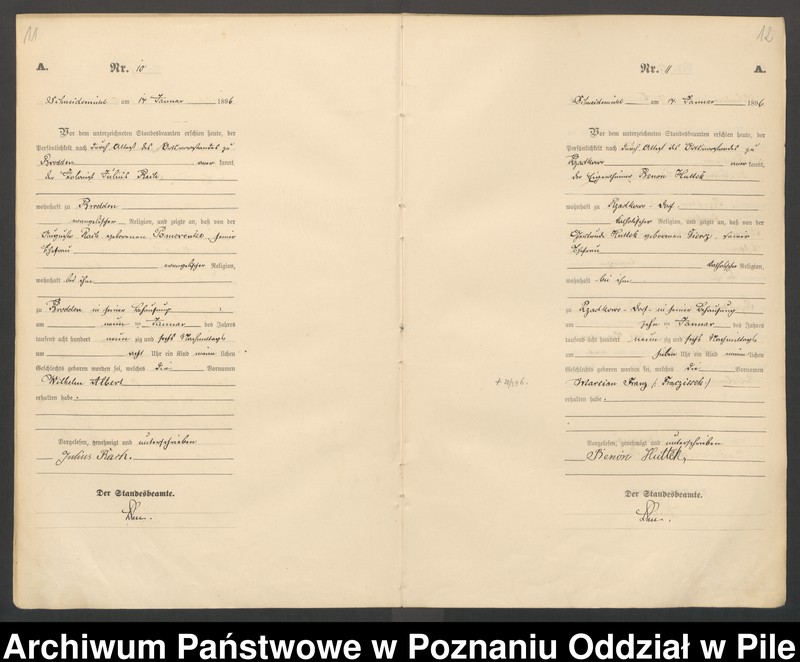 11
A.
Nr. 10
Schneidemühl am 14 Januar 1896
Vor dem unterzeichneten Standesbeamten erschien heute, der
Persönlichkeit nach durch Attest des Ortsvorstandes zu
Brodden anerkannt,
der Kolonist Julius Rach
wohnhaft zu Brodden
evangelischer Religion, und zeigte an, daß von der
Auguste Rach geborenen Pomerenke, seiner
Ehefrau
evangelischer Religion,
wohnhaft bei ihm
zu Brodden in seiner Behausung
am neun ten Januar des Jahres
tausend acht hundert neun zig und sechs Nachmittags
um acht Uhr ein Kind männlichen
Geschlechts geboren worden sei, welches die Vornamen
Wilhelm Albert
erhalten habe.
Vorgelesen, genehmigt und unterschrieben
Julius Rach.
Der Standesbeamte.
12
Nr. 11
A.
Schneidemühl am 14 Januar 1896
Vor dem unterzeichneten Standesbeamten erschien heute, der
Persönlichkeit nach durch Attest des Ortsvorstandes zu
Rzadkowo anerkannt,
der Eigenthümer Benon Huttek
wohnhaft zu Rzadkowo-Dorf
katholischer Religion, und zeigte an, daß von der
Huttek geborenen seiner
Ehefrau
katholischer Religion,
wohnhaft bei ihm
zu Rzadkowo-Dorf in seiner Behausung
am zehn ten Januar des Jahres
tausend acht hundert neun zig und sechs Nachmittags
um sieben Uhr ein Kind männlichen
Geschlechts geboren worden sei, welches die Vornamen
Marcian Franz (Franziszek)
erhalten habe.
Vorgelesen, genehmigt und unterschrieben
Benon Huttek,
Der Standesbeamte.
Archiwum Państwowe w Poznaniu Oddział w Pile